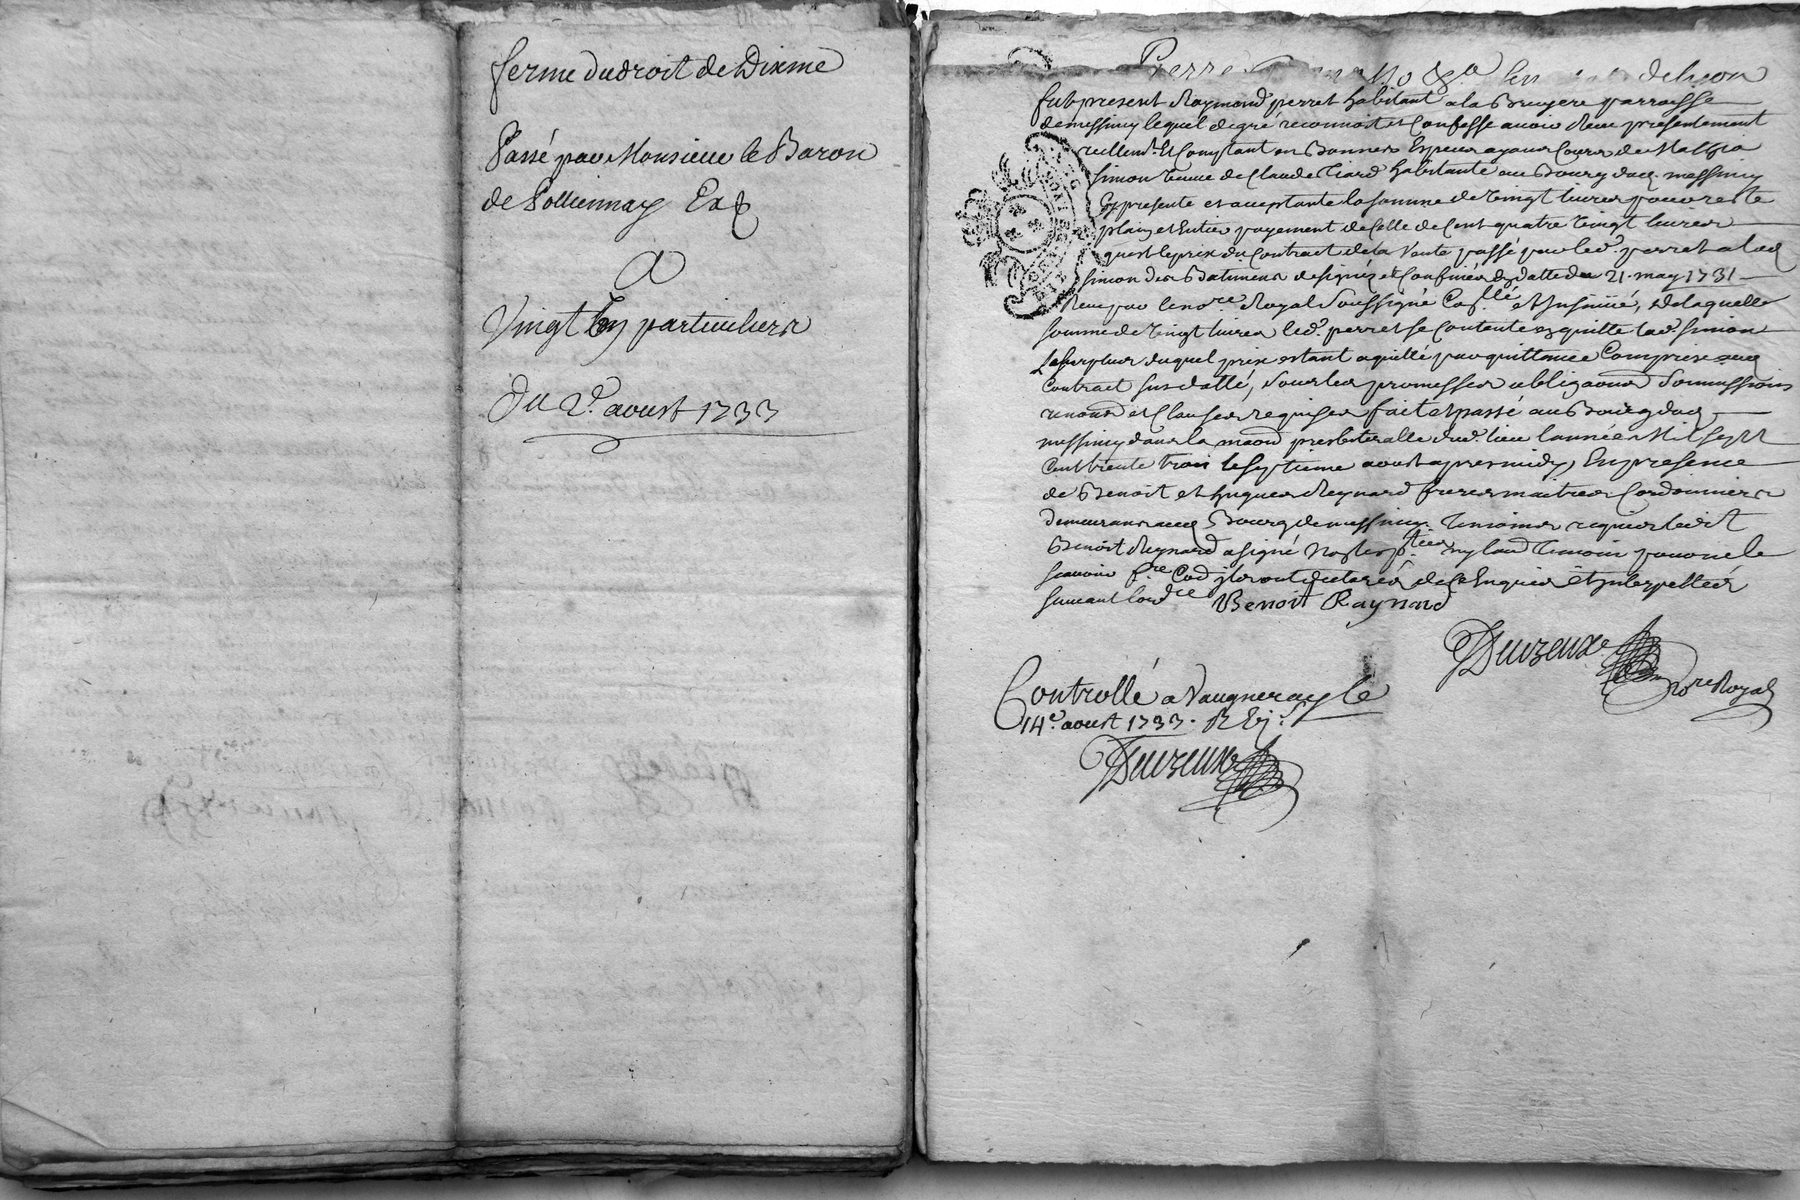 ferme du droit de Dixme
Passé par Monsieur le Baron
de Pollionnay
A
Vingt particuliers
Du 2e. aoust 1733
Pierre de lieon
fut present Raymond perret habitant a la Bruyere parroisse
de messimy lequel de gré reconnoist et Confesse avoir Receu presentement
reellemt. Et Comptant en Bonnes Especes ayans Cours de
simon veuve de Claude Tiard habitante au Bourg dud messimy
Cy presente et acceptante la somme de vingt livres pour reste
plain et Entier payement de Celle de Cent quatre vingt livres
quest le prix du Contract de la Vente passé par led. perret a lad
simon des Batimens designés et Confinés datte du 21 may 1731
Receu par le nore. Royal soussigné Collé et Insinué, de laquelle
somme de vingt livres led. perret se Contente quitte lad. simon
Le surplus duquel prix estant aquitté par quittance Comprise aud
Contract susdatté, sous les promesses obligaons soumissions
renons et Clauses requises fait et passé au Bourg dud
messimy dans la maon presbiteralle dud. lieu lannée Mil sept
Cent trente trois le septieme aoust apres midy, En presence
de Benoit et hugues Reynard freres maitres Cordonniers
demeurans aud Bourg de messimy Temoins requis ledit
Benoit Reynard a signé Non les pties ny laud Temoin pour ne le
scavoir fre Cod ils ont declaré de Ce Enquis et Interpellés
suivant lordce Benoit Raynard
Duvzeux
Nore Royal
Controllé a Vaugneray le
14e. aoust 1733. R
Duvzeux